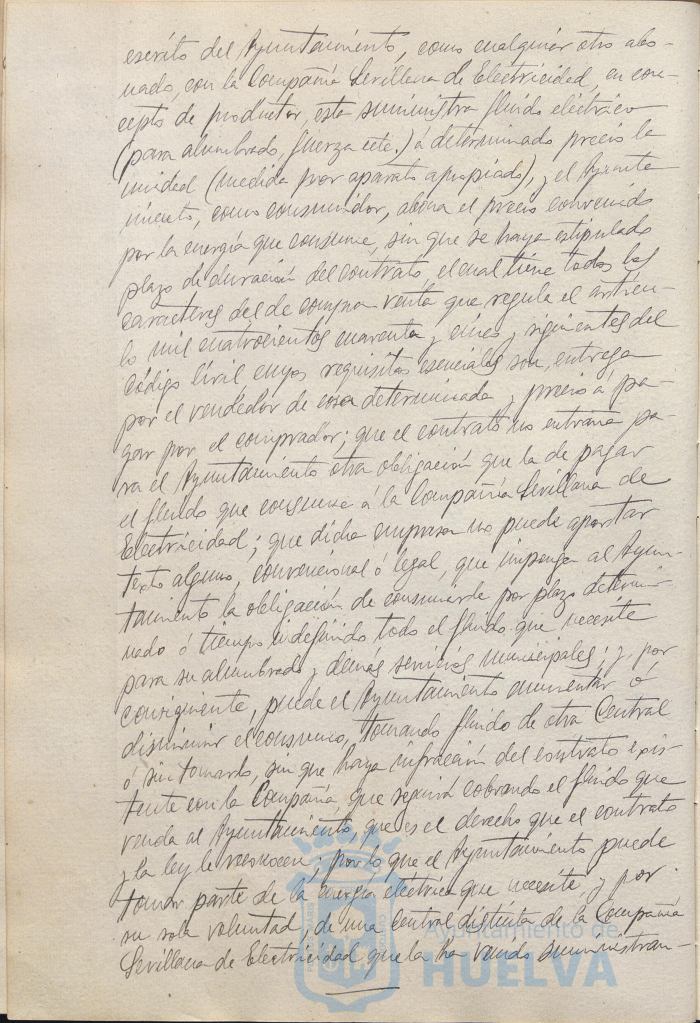 escrito del Ayuntamiento, como cualquier otro abo-
nado, con la Compañía Sevillana de Electricidad, en con-
cepto de productor, esta suministra fluido eléctrico
(para alumbrado, fuerza etc.) á determinado precio la
unidad (medida por aparato apropiado), y el Ayunta
miento, como consumidor, abona el precio convenido
por la energía que consume, sin que se haya estipulado
plazo de duración del contrato, el cual tiene todos los
caracteres del de compra venta que regula el artícu-
lo mil cuatrocientos cuarenta y cinco y siguientes del
Código Civil cuyos requisitos esenciales son, entrega
por el vendedor de cosa determinada y precio a pa-
gar por el comprador; que el contrato no entraña pa-
ra el Ayuntamiento otra obligación que la de pagar
el fluido que consume á la Compañía Sevillana de
Electricidad; que dicha empresa no puede aportar
texto alguno, convencional ó legal, que imponga al Ayun-
tamiento la obligación de consumirle por plazo determi-
nado ó tiempo indefinido todo el fluido que necesite
para su alumbrado y demás servicios municipales; y, por
consiguiente, puede el Ayuntamiento aumentar ó
disminuir el consumo, tomando fluido de otra Central
ó sin tomarlo, sin que haya infracción del contrato exis-
tente con la Compañía, que seguirá cobrando el fluido que
venda al Ayuntamiento, que es el derecho que el contrato
y la ley le reconocen; por lo que el Ayuntamiento puede
tomar parte de la energía eléctrica que necesite, y por
su sola voluntad, de una Central distinta de la Compañía
Sevillana de Electricidad que la ha venido suministran-
Ayuntamiento de
HUELVA